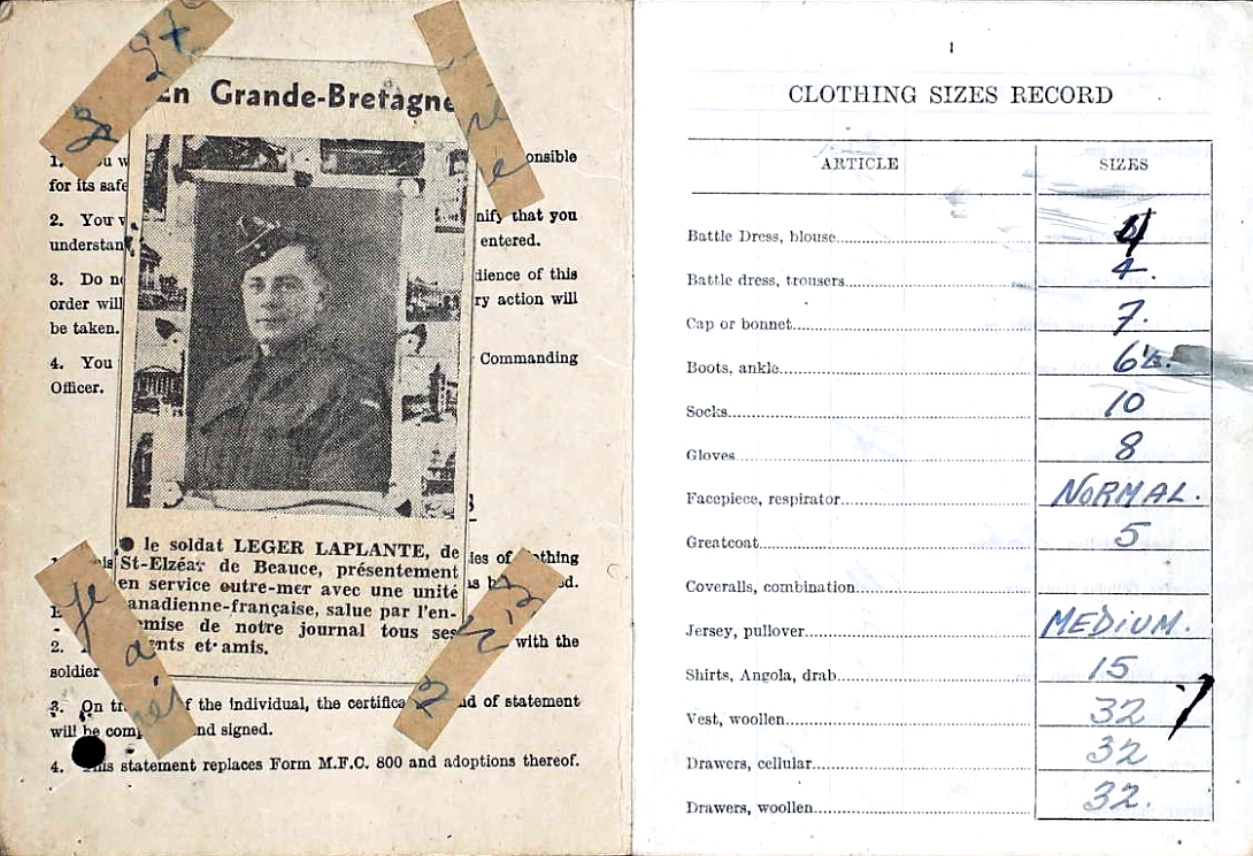 En Grande-Bretagne
1. You w onsible
for its safe
2. You nify that you
understan entered.
3. Do no dience of this
order will ry action will
be taken.
4. You Commanding
Officer.
le soldat LEGER LAPLANTE, de
St-Elzéar de Beauce, présentement
en service outre-mer avec une unité
canadienne-française, salue par l'en-
mise de notre journal tous ses
ents et amis.
ies of clothing
2. with the
soldier
3. On tr f the individual, the certifica d of statement
will be comp nd signed.
4. This statement replaces Form M.F.C. 800 and adoptions thereof.
1
CLOTHING SIZES RECORD
ARTICLE SIZES
Battle Dress, blouse 4
Battle dress, trousers 4.
Cap or bonnet 7.
Boots, ankle 6½.
Socks 10
Gloves 8
Facepiece, respirator NORMAL.
Greatcoat 5
Coveralls, combination
Jersey, pullover MEDIUM.
Shirts, Angola, drab 15
Vest, woollen 32
Drawers, cellular 32
Drawers, woollen 32.